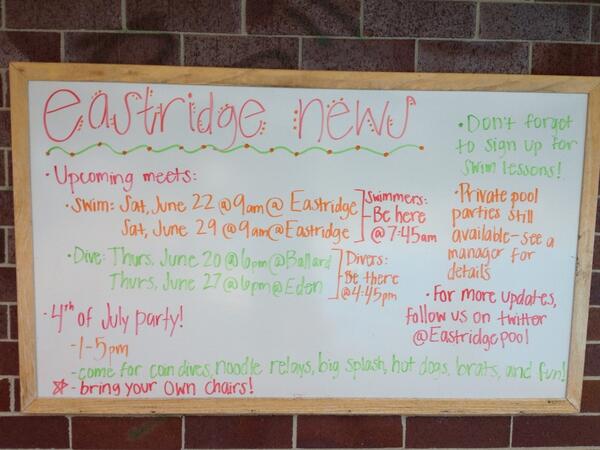 eastridge news
• Upcoming meets:
• Swim: Sat, June 22 @ 9am @ Eastridge
Sat, June 29 @ 9am @ Eastridge
Swimmers:
- Be here
@ 7:45am
• Dive: Thurs, June 20 @ 6pm @ Ballard
Thurs, June 27 @ 6pm @ Eden
Divers:
- Be there
@ 4:45pm
• 4th of July party!
- 1-5pm
- come for coin dives, noodle relays, big splash, hot dogs, brats, and fun!
☆ - bring your own chairs!
• Don't forget
to sign up for
swim lessons!
• Private pool
parties still
available - see a
manager for
details
• For more updates,
follow us on twitter
@Eastridgepool